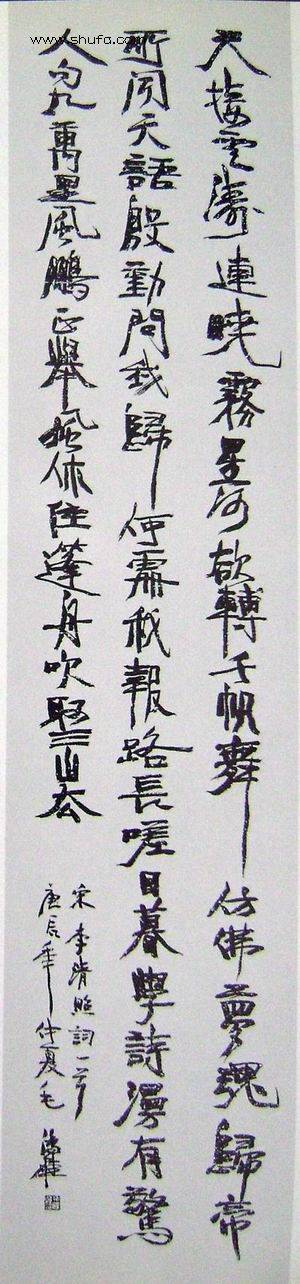 天接雲濤連曉霧星河欲轉千帆舞仿佛夢魂歸帝
所聞天語殷勤問我歸何處我報路長嗟日暮學詩漫有驚
人句九萬里風鵬正舉風休住蓬舟吹取三山去
宋李清照詞一首
庚辰年仲夏毛
www.shufa.com